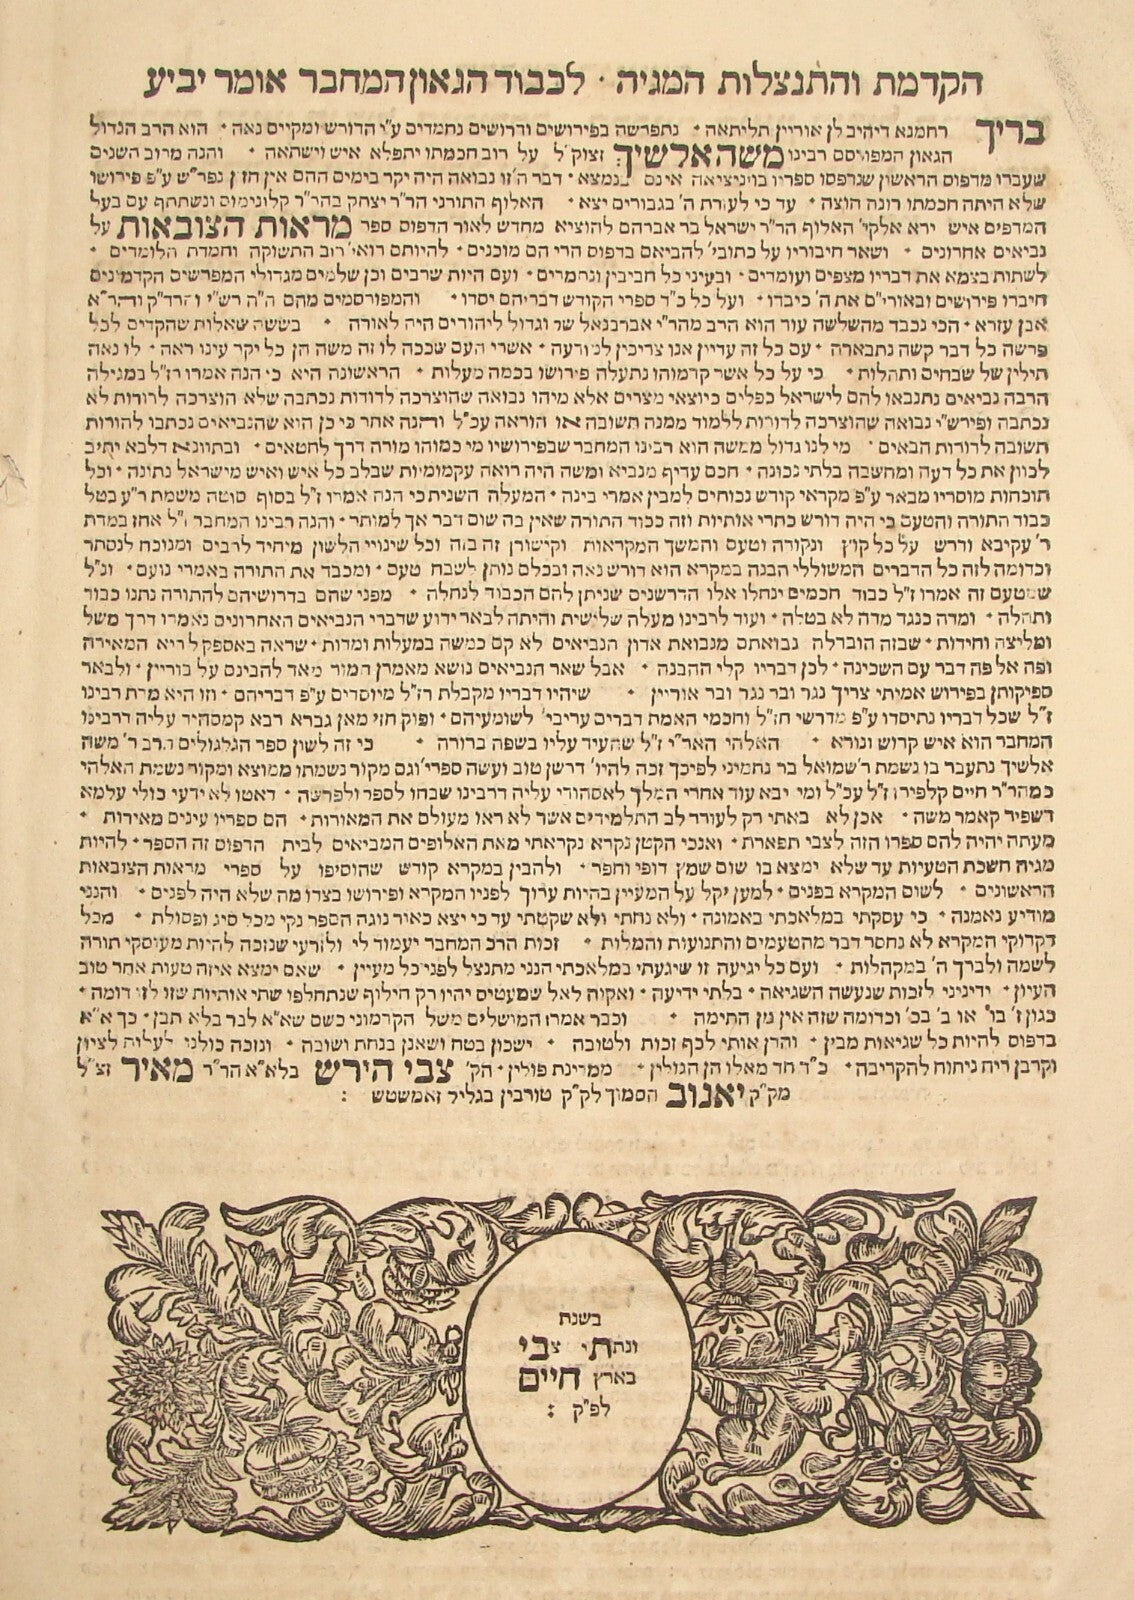 הקדמת והתנצלות המגיה · לכבוד הגאון המחבר אומר יביע
בריך רחמנא דיהיב לן אוריין תליתאה · נתפרשה בפירושים ודרושים נחמדים ע״י הדורש ומקיים נאה · הוא הרב הגדול
הגאון המפורסם רבינו משה אלשיך זצוק״ל על רוב חכמתו יתפלא איש וישתאה · והנה מרוב השנים
שעברו מדפוס הראשון שנדפסו ספריו בויניציאה אינם בנמצא · דבר ה׳ זו נבואה היה יקר בימים ההם אין חזון נפר״ש ע״פ פירושו
שלא היתה חכמתו רונה חוצה · עד כי לעזרת ה׳ בגבורים יצא · האלוף התורני הר״ר יצחק בהר״ר קלונימוס ונשתתף עם בעל
המדפים איש ירא אלקי׳ האלוף הר״ר ישראל בר אברהם להוציא מחדש לאור הדפוס ספר מראות הצובאות על
נביאים אחרונים · ושאר חיבוריו על כתובי׳ להביאם בדפוס הרי הם מוכנים · להיותם רואי׳ רוב התשוקה וחמדת הלומדים ·
לשתות בצמא את דבריו מצפים ועומדים · ובעיני כל חביבין ונחמדים · ועם היות שרבים וכן שלמים מגדולי המפרשים הקדמונים
חיברו פירושים ובאורי״ם את ה׳ כיבדו · ועל כל כ״ד ספרי הקודש דבריהם יסדו · והמפורסמים מהם ה״ה רש״י והרד״ק והר״א
אבן עזרא · הכי נכבד מהשלשה עוד הוא הרב מהר״י אברבנאל שר וגדול ליהודים היה לאורה · בששה שאלות שהקדים לכל
פרשה כל דבר קשה נתבארה · עם כל זה עדיין אנו צריכין למודעה · אשרי העם שככה לו זה משה הן כל יקר עינו ראה · לו נאה
תילין של שבחים ותהלות · כי על כל אשר קדמוהו נתעלה פירושו בכמה מעלות · הראשונה היא כי הנה אמרו רז״ל במגילה
הרבה נביאים נתנבאו להם לישראל כפלים כיוצאי מצרים אלא מיהו נבואה שהוצרכה לדורות נכתבה שלא הוצרכה לדורות לא
נכתבה ופירש״י נבואה שהוצרכה לדורות ללמוד ממנה תשובה או הוראה עכ״ל והנה אחר כי כן הוא שהנביאים נכתבו להורות
תשובה לדורות הבאים · מי לנו גדול ממשה הוא רבינו המחבר שבפירושיו מי כמוהו מורה דרך לחטאים · ובתוונא דלבא יתיב
לכוון את כל דעה ומחשבה בלתי נכונה · חכם עדיף מנביא ומשה היה רואה עקמומיות שבלב כל איש ואיש מישראל נתונה · וכל
תוכחות מוסריו מבאר ע״פ מקראי קודש נכוחים למבין אמרי בינה · המעלה השנית כי הנה אמרו ז״ל בסוף סוטה משמת ר״ע בטל
כבוד התורה והטעם כי היה דורש כתרי אותיות וזה ככוד התורה שאין בה שום דבר אך למותר · והנה רבינו המחבר ז״ל אחז במדת
ר׳ עקיבא ודרש על כל קוץ ונקודה וטעם והמשך המקראות וקישורן זה בזה וכל שינויי הלשון מיחיד לרבים ומנוכח לנסתר
וכדומה לזה כל הדברים המשוללי הבנה במקרא הוא דורש נאה ובכלם נותן לשבח טעם · ומכבד את התורה באמרי נועם · ונ״ל
שמטעם זה אמרו ז״ל כבוד חכמים ינחלו אלו הדרשנים שניתן להם הכבוד לנחלה · מפני שהם בדרושיהם להתורה נתנו כבוד
ותהלה · ומדה כנגד מדה לא בטלה · ועוד לרבינו מעלה שלישית והיתה לבאר ידוע שדברי הנביאים האחרונים נאמרו דרך משל
ומליצה וחידות · שבזה הובדלה נבואתם מנבואת אדון הנביאים לא קם כמשה במעלות ומדות · שראה באספקלריא המאירה
ופה אל פה דבר עם השכינה · לכן דבריו קלי ההבנה · אבל שאר הנביאים נושא מאמרן חמור מאד להבינם על בוריין · ולבאר
ספיקותן בפירוש אמיתי צריך נגר ובר נגר ובר אוריין · שיהיו דבריו מקבלת רז״ל מיוסדים ע״פ דבריהם · וזו היא מדת רבינו
ז״ל שכל דבריו נתיסדו ע״פ מדרשי חז״ל וחכמי האמת דברים עריבי׳ לשומעיהם · ופוק חזי מאן גברא רבא קמסהיד עליה דרבינו
המחבר הוא איש קדוש ונורא · האלהי האר״י ז״ל שהעיד עליו בשפה ברורה · כי זה לשון ספר הגלגולים הרב ר׳ משה
אלשיך נתעבר בו נשמת ר׳ שמואל בר נחמיני לפיכך זכה להיו׳ דרשן טוב ועשה ספרי׳ וגם מקור נשמתו ממוצא ומקור נשמת האלהי
כמהר״ר חיים קלפירו ז״ל עכ״ל ומי יבא עוד אחרי המלך לאסהודי עליה דרבינו שבחו לספר ולפרשה · דאטו לא ידעי כולי עלמא
דשפיר קאמר משה · אכן לא באתי רק לעורר לב התלמידים אשר לא ראו מעולם את המאורות · הם ספריו עינים מאירות ·
מעתה יהיה להם ספרו הזה לצבי תפארת · ואנכי הקטן נקרא נקראתי מאת האלופים המביאים לבית הדפוס זה הספר · להיות
מגיה חשכת הטעיות עד שלא ימצא בו שום שמץ דופי וחפר · ולהבין במקרא קודש שהוסיפו על ספרי מראות הצובאות
הראשונים · לשום המקרא בפנים · למען יקל על המעיין בהיות ערוך לפניו המקרא ופירושו בצדו מה שלא היה לפנים · והנני
מודיע נאמנה · כי עסקתי במלאכתי באמונה · ולא נחתי ולא שקטתי עד כי יצא כאור נוגה הספר נקי מכל סיג ופסולת · מכל
דקדוקי המקרא לא נחסר דבר מהטעמים והתנועות והמלות · זכות הרב המחבר יעמוד לי ולזרעי שנזכה להיות מעוסקי תורה
לשמה ולברך ה׳ במקהלות · ועם כל יגיעה זו שיגעתי במלאכתי הנני מתנצל לפני כל מעיין · שאם ימצא איזה טעות אחר טוב
העיון · ידינני לזכות שנעשה השגיאה · בלתי ידיעה · ואקוה לאל שמעטים יהיו רק חילוף שנתחלפו שתי אותיות שזו לזו דומה ·
כגון ז׳ בו׳ או ב׳ בכ׳ וכדומה שזה אין מן התימה · וכבר אמרו המושלים משל הקדמוני כשם שא״א לבר בלא תבן · כך א״א
בדפוס להיות כל שגיאות מבין · והדן אותי לכף זכות ולטובה · ישכון בטח ושאנן בנחת ושובה · ונזכה כולנו לעלות לציון
וקרבן ריח ניחוח להקריבה · כ״ד חד מאלו הן הגולין · ממדינת פולין · הק׳ צבי הירש בלא״א הר״ר מאיר זצ״ל
מק״ק יאנוב הסמוך לק״ק טורבין בגליל זאמשטש :
בשנת
ונתתי צבי
בארץ חיים
לפ״ק :